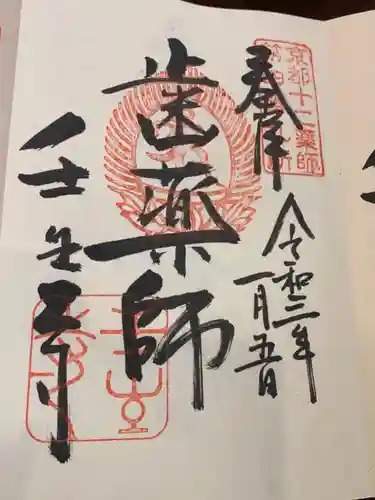 奉拝
京都十二薬師
令和三年
一月五日
歯薬師
壬生寺